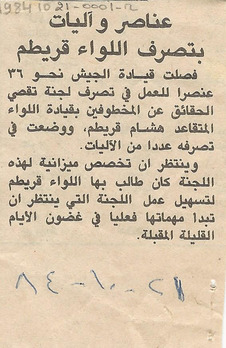 19841021-0001-2
عناصر وآليات
بتصرف اللواء قريطم
فصلت قيادة الجيش نحو ٣٦
عنصرا للعمل في تصرف لجنة تقصي
الحقائق عن المخطوفين بقيادة اللواء
المتقاعد هشام قريطم، ووضعت في
تصرفه عددا من الآليات.
وينتظر ان تخصص ميزانية لهذه
اللجنة كان طالب بها اللواء قريطم
لتسهيل عمل اللجنة التي ينتظر ان
تبدأ مهماتها فعليا في غضون الايام
القليلة المقبلة
٢١-١٠-٨٤